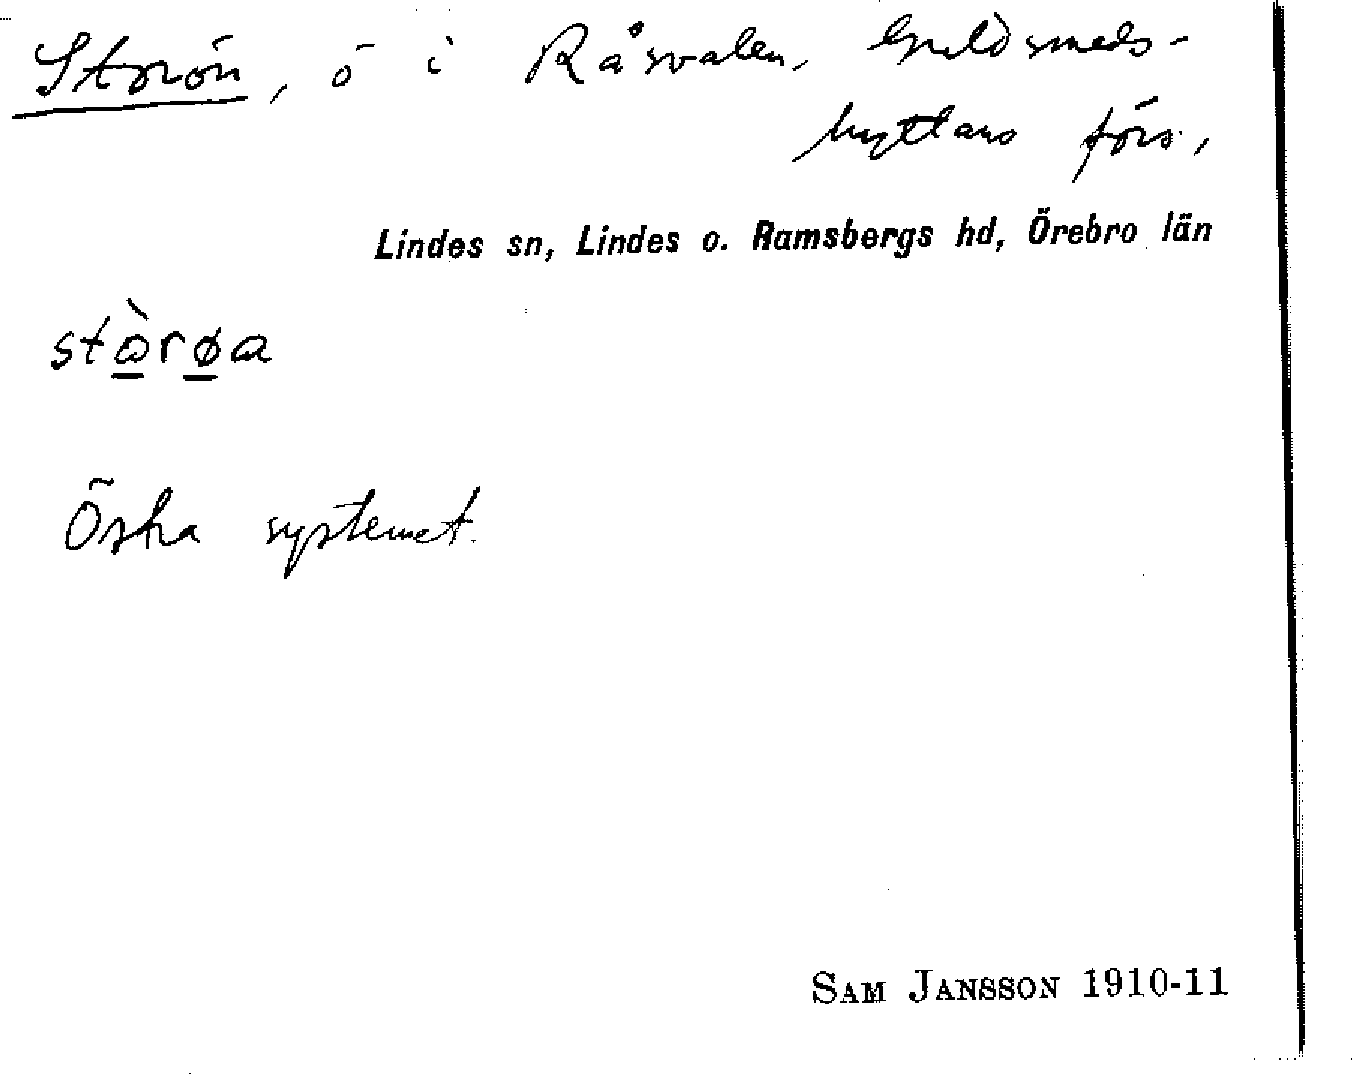 Storön, ö i Råsvalen, Guldsmeds-
hyttans förs.,
Lindes sn, Lindes o. Ramsbergs hd, Örebro län
stɷ̠̀rø̠a
Östra systemet.
SAM JANSSON 1910-11